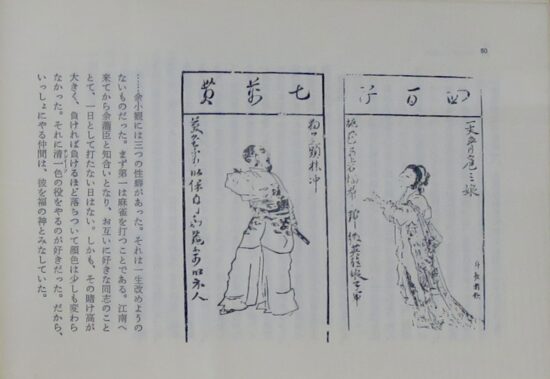 60
四百子
一丈青扈三娘
七萬貫
豹子頭林冲
……余小観には三つの性癖があった。それは一生改めようの
ないものだった。まず第一は麻雀を打つことである。江南へ
来てから余藎臣と知合いとなり、お互いに好きな同志のこと
とて、一日として打たない日はない。しかも、その賭け高が
大きく、負ければ負けるほど落ちついて顔色は少しも変わら
なかった。それに清一色の役をやるのが好きだった。だから、
いっしょにやる仲間は、彼を福の神とみなしていた。